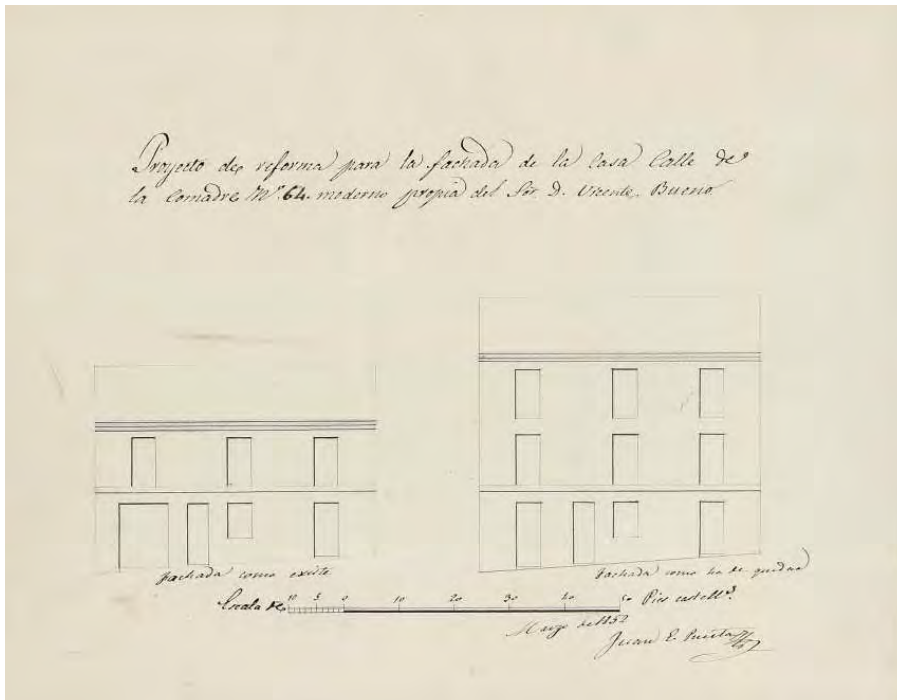 Proyecto de reforma para la fachada de la Casa Calle de
la Comadre Nº. 64. moderno propia del Sõr. D. Vicente Bueno
fachada como existe
fachada como ha de quedar
Escala de 10 5 0 10 20 30 40 50 Pies castells.
Marzo de 1852
Juan E. Puerta